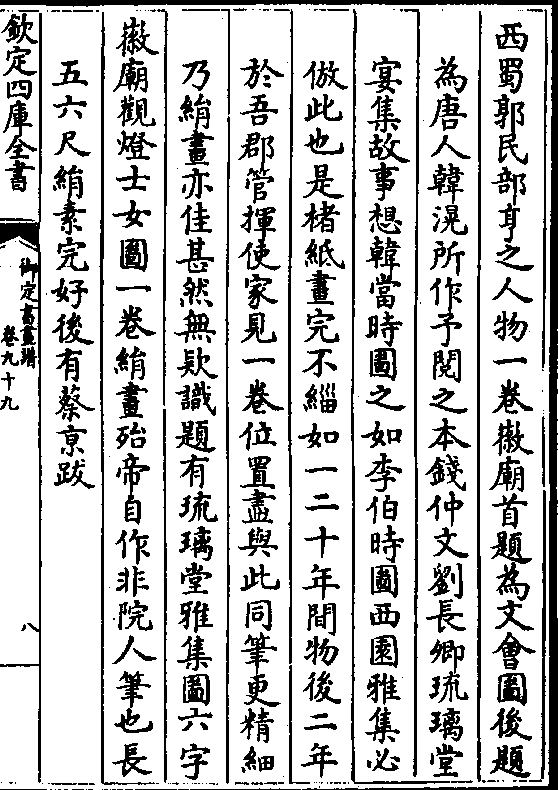 西蜀郭民部亨之人物一卷徽廟首題為文會圖後題
為唐人韓滉所作予閱之本錢仲文劉長卿琉璃堂
宴集故事想韓當時圖之如李伯時圖西園雅集必
倣此也是楮紙畫完不緇如一二十年間物後二年
於吾郡管揮使家見一卷位置盡與此同筆更精細
乃絹畫亦佳甚然無欵識題有琉璃堂雅集圖六字
徽廟觀燈士女圖一卷絹畫殆帝自作非院人筆也長
五六尺絹素完好後有蔡京跋
欽定四庫全書
御定書畫譜
卷九十九
八